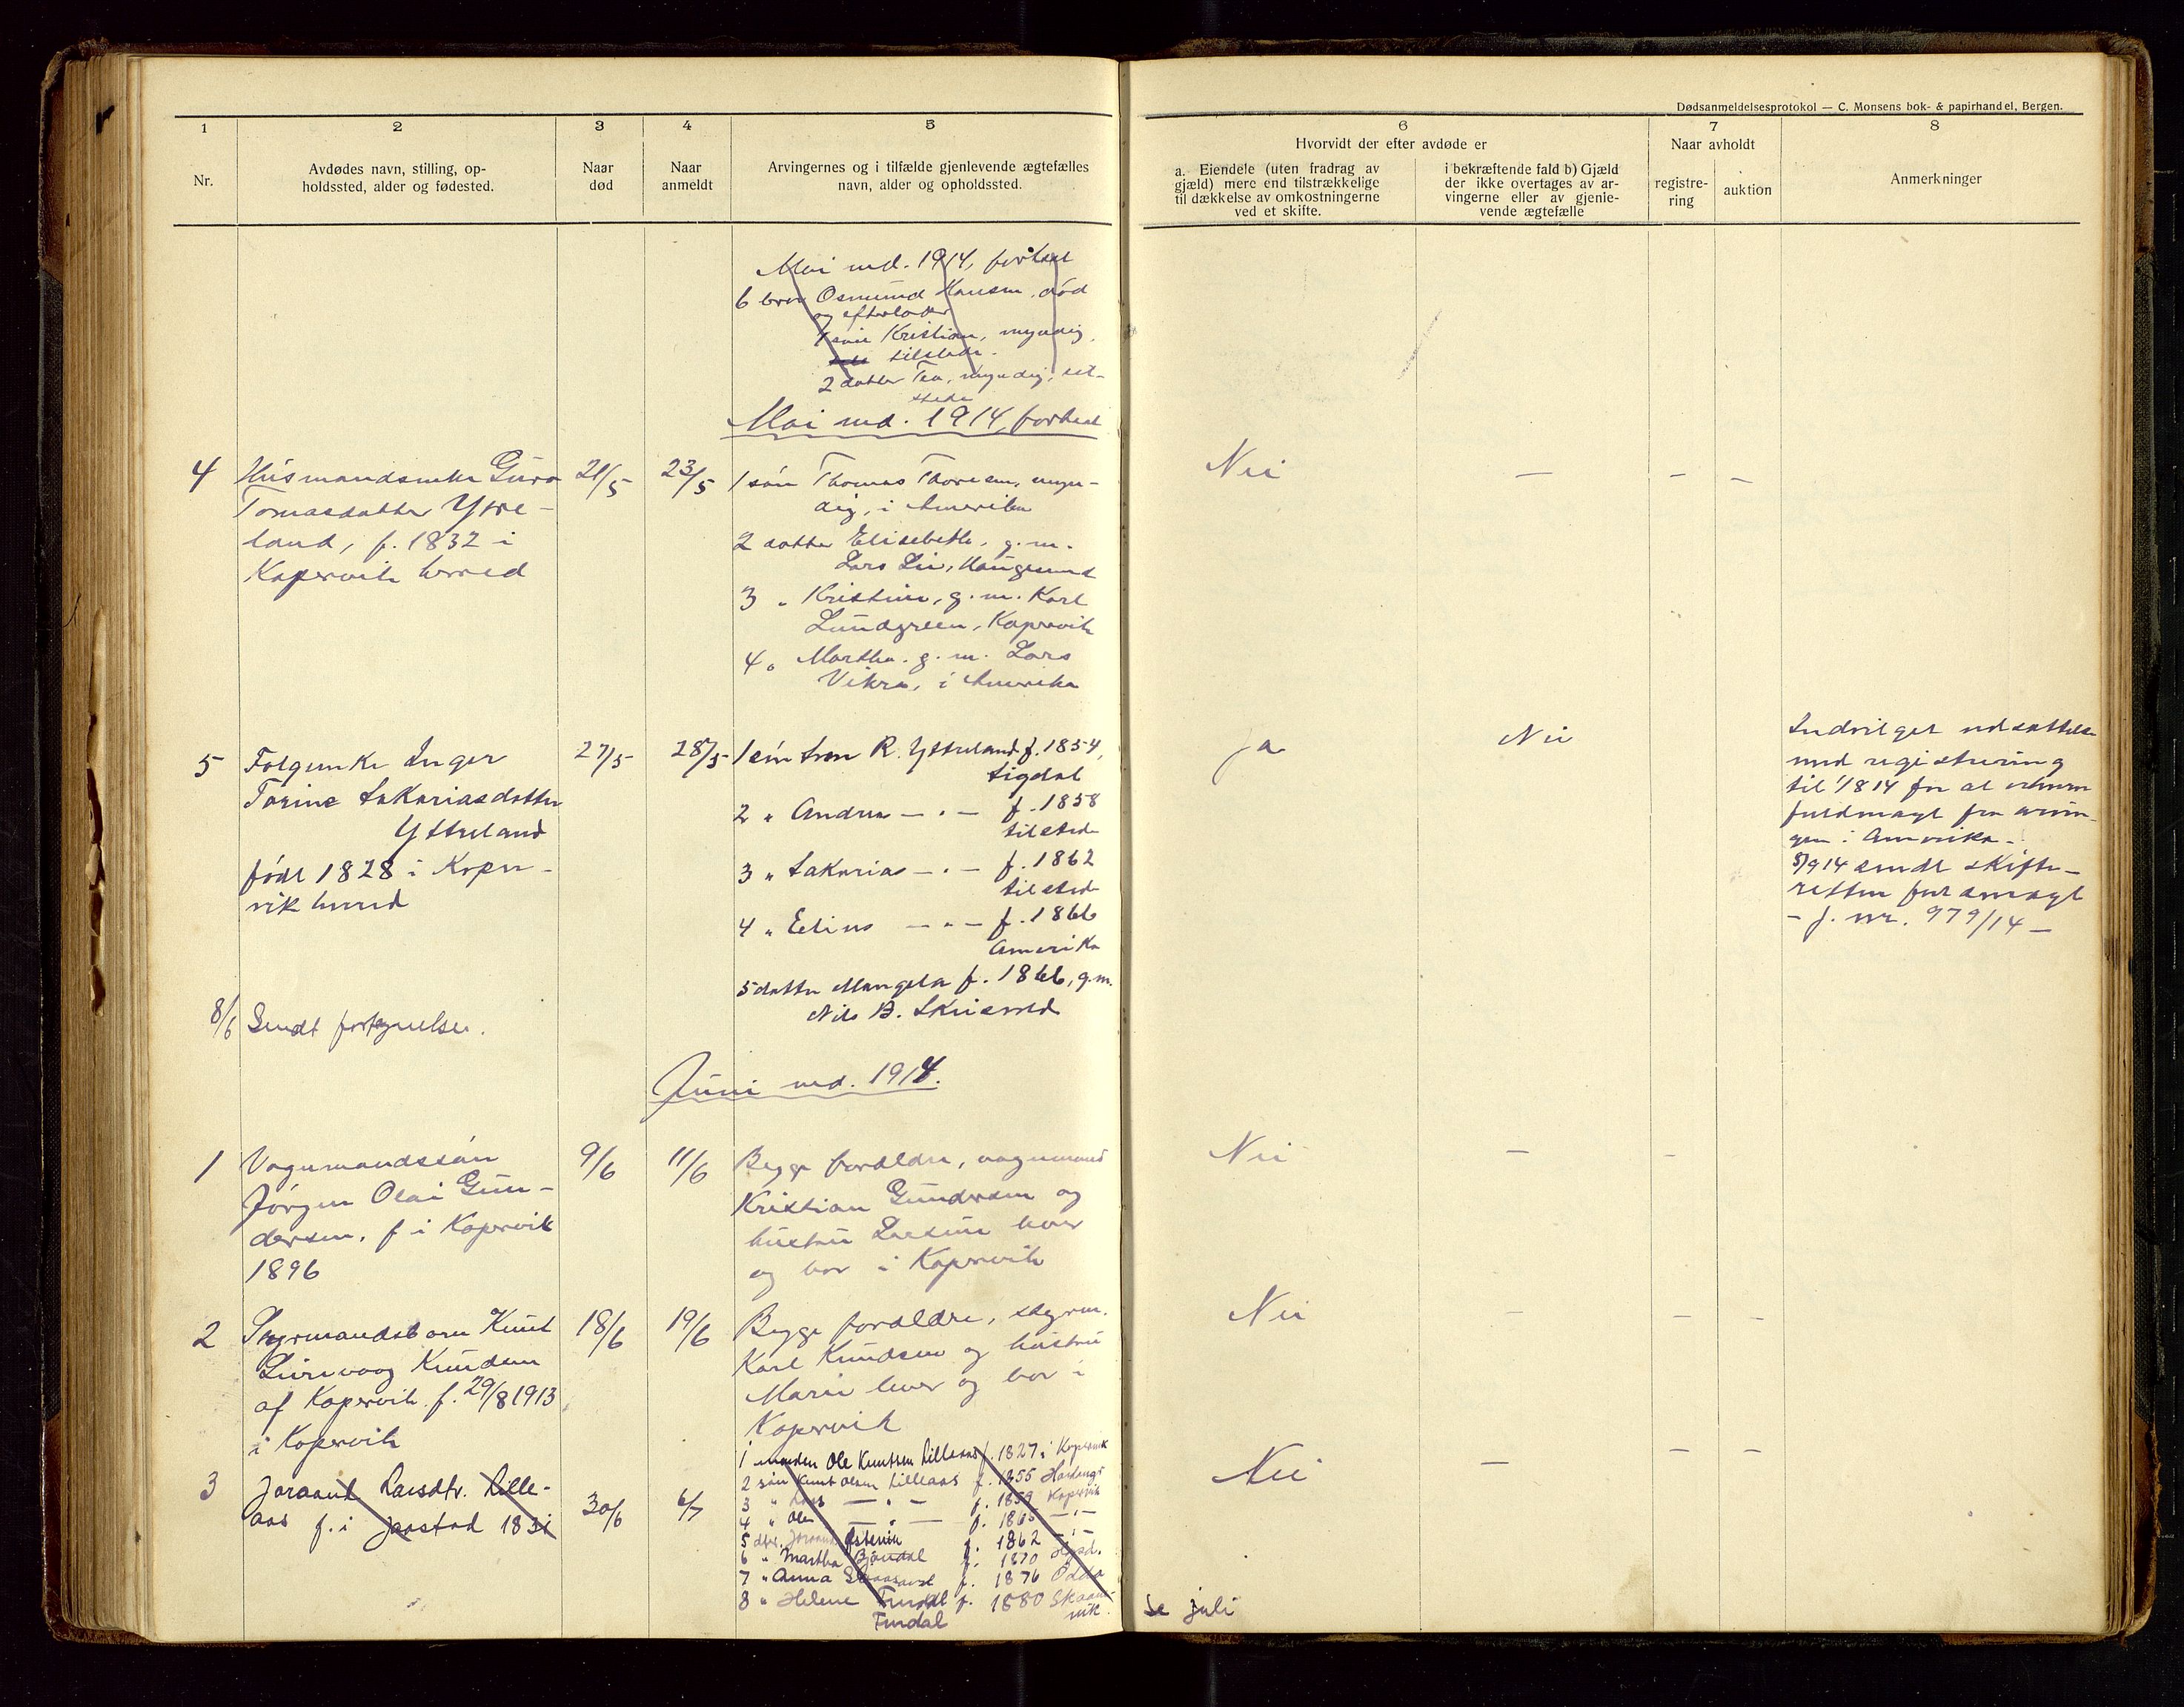 Dødsanmeldelsesprotokol — C. Monsens bok- & papirhandel, Bergen.
1
2
3
4
5
6
7
8
Nr.
Avdødes navn, stilling, op-
holdssted, alder og fødested.
Naar
død
Naar
anmeldt
Arvingernes og i tilfælde gjenlevende ægtefælles
navn, alder og opholdssted.
Hvorvidt der efter avdøde er
a. Eiendele (uten fradrag av
gjæld) mere end tilstrækkelige
til dækkelse av omkostningerne
ved et skifte.
i bekræftende fald b) Gjæld
der ikke overtages av ar-
vingerne eller av gjenle-
vende ægtefælle
Naar avholdt
registre-
ring
auktion
Anmerkninger
Mai md. 1914, fortsat
6 bror Osmund Hansen, død
og efterlader
1 søn Kristian, myndig,
tilstede.
2 datter Tea, myndig, til-
stede
Mai md. 1914, fortsat
4
Husmandsenke Guro
Tomasdatter Ytre-
land, f. 1832 i
Kopervik herred
21/5
23/5
1 søn Thomas Thoresen, myn-
dig, i Amerika
2 datter Elisebeth, g. m.
Lars Lie, Haugesund
3 " Kristine, g. m. Karl
Lundgreen, Kopervik
4 " Martha. g. m. Lars
Vikra, i Amerika
Nei
—
—
—
5
Folgeenke Inger
Torine Sakariasdatter
Ytreland
født 1828 i Koper-
vik herred
27/5
28/5
1 søn R. Yttreland f. 1854,
Sigdal
2 " Andreas — " — f. 1858
tilsted
3 " Sakarias — " — f. 1862
tilsted
4 " Elias — " — f. 1866
Amerika
5 datter f. 1866, g. m.
Nils B. Skrisvold
Ja
Nei
Indvilget udsættelse
med registrering
til 1/8 14 for at
fuldmagt fra arvin-
gen i Amerika -
5/9 14 sendt skifte-
retten fuldmagt
- j. nr. 979/14 -
8/6 Sendt fortegnelse.
Juni md. 1914.
1
Vognmandssøn
Jørgen Olai Gun-
dersen, f i Kopervik
1896
9/6
11/6
Begge forældre, vognmand
Kristian Gundersen og
hustru lever
og bor i Kopervik
Nei
—
—
2
Styrmandsbarn Knut
Lurevaag Knudsen
af Kopervik f. 29/8 1913
i Kopervik
18/6
19/6
Begge forældre, styrm.
Karl Knudsen og hustru
Marie lever og bor i
Kopervik
Nei
—
—
—
3
Joraand Larsdtr. Lille-
aas f. i Jaastad 1831
30/6
6/7
1 manden Ole Knutsen Lilleaas f. 1827 i Kopervik
2 søn Knut Olsen Lilleaas f. 1855
3 " Lars — " — f. 1859 Kopervik
4 " Ole — " — f. 1865 — " —
5 dtr. Joraand f. 1862 — " —
6 " Martha Bjøndal f. 1870
7 " Anna f. 1876 Odda
8 " Helene f. 1880 Skaane-
vik.
Nei
—
—
—
Se juli